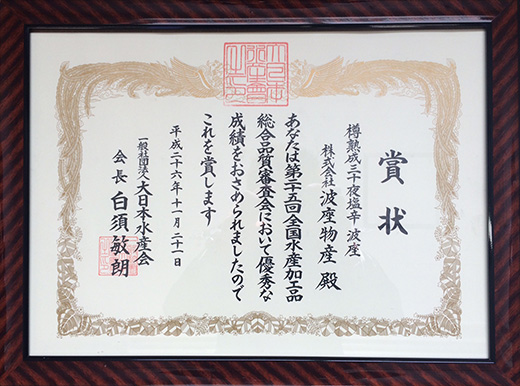 賞状
樽熟成三十夜塩辛 波座
株式会社 波座物産 殿
あなたは第二十五回全国水産加工品
総合品質審査会において優秀な
成績をおさめられましたので
これを賞します
平成二十六年十一月二十一日
一般社団法人大日本水産会
会長 白須敏朗